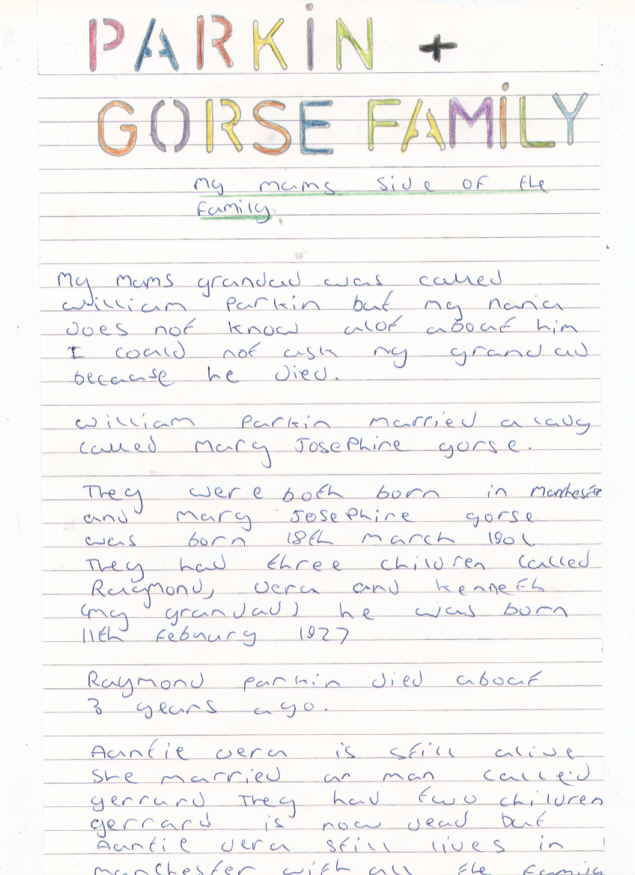 PARKIN +
GORSE FAMILY
My mams side of the
family.
My mams grandad was called
william Parkin but my nana
does not know alot about him
I could not ask my grandad
because he died.
william Parkin married a lady
called Mary Josephine gorse.
They were both born in Manchester
and Mary Josephine gorse
was born 18th March
They had three children called
Raymond, vera and kenneth
(my grandad) he was born
11th Febuary 1927
Raymond parkin died about
3 years ago.
Aauntie vera is still alive
she married an man called
gerrard They had two children
gerrard is now dead but
Aauntie vera still lives in
manchester with all the family